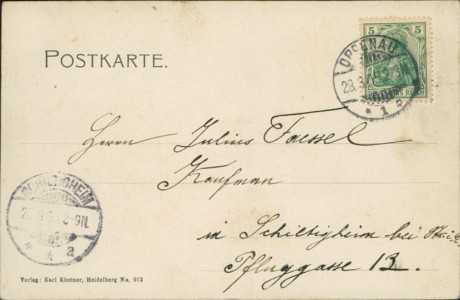 POSTKARTE.
5 5
OPPENAU
Herrn Julius Faessel
Kaufman
in Schiltigheim bei
Pfluggasse 13.
SCHILTIGHEIM
Verlag: Karl Küstner, Heidelberg No. 913